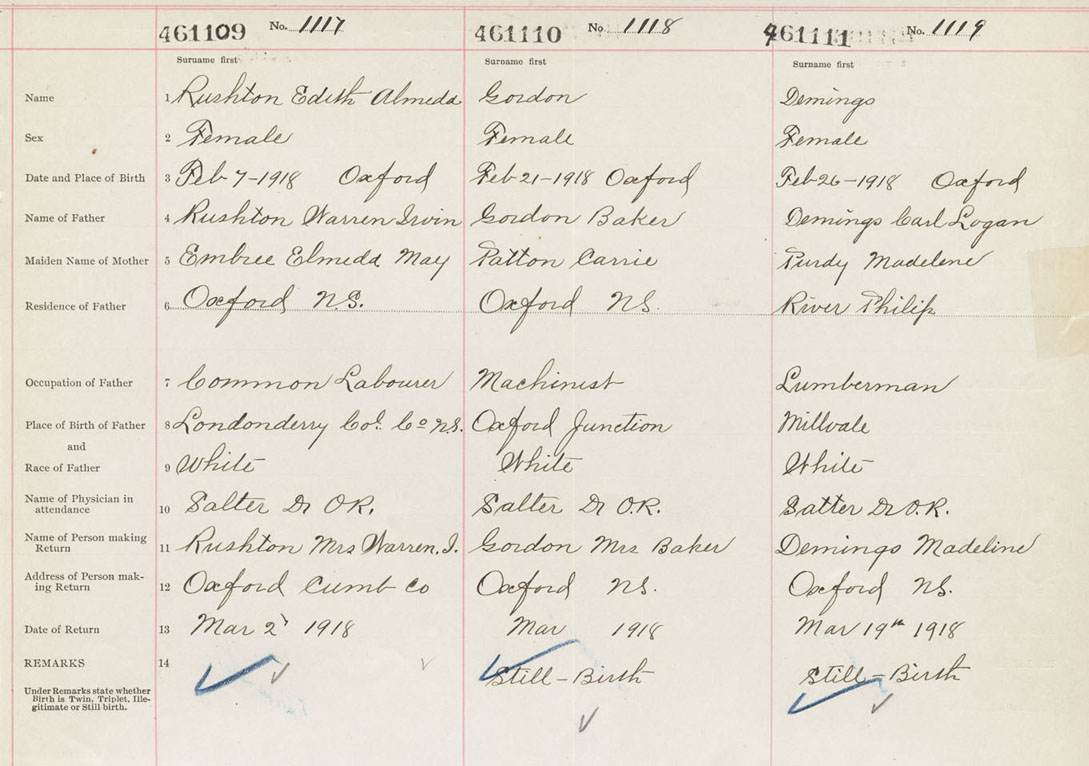 461109 No. 1117 461110 No. 1118 461111 No. 1119
Surname first Surname first Surname first
Name 1 Rushton Edith Almeda Gordon Demings
Sex 2 Female Female Female
Date and Place of Birth 3 Feb 7-1918 Oxford Feb 21-1918 Oxford Feb 26-1918 Oxford
Name of Father 4 Rushton Warren Irvin Gordon Baker Demings Carl Logan
Maiden Name of Mother 5 Embree Elmeda May Patton Carrie Purdy Madelene
Residence of Father 6 Oxford N.S. Oxford NS. River Philip
Occupation of Father 7 Common Labourer Machinist Lumberman
Place of Birth of Father 8 Londonderry Col. Co N.S. Oxford Junction Millvale
and
Race of Father 9 White White White
Name of Physician in
attendance 10 Salter Dr O.R. Salter Dr O.R. Salter Dr O.R.
Name of Person making
Return 11 Rushton Mrs Warren. I. Gordon Mrs Baker Demings Madeline
Address of Person mak-
ing Return 12 Oxford Cumb Co Oxford NS. Oxford NS.
Date of Return 13 Mar 2 1918 Mar 1918 Mar 19th 1918
REMARKS 14 Still-Birth Still-Birth
Under Remarks state whether
Birth is Twin, Triplet, Ille-
gitimate or Still birth.